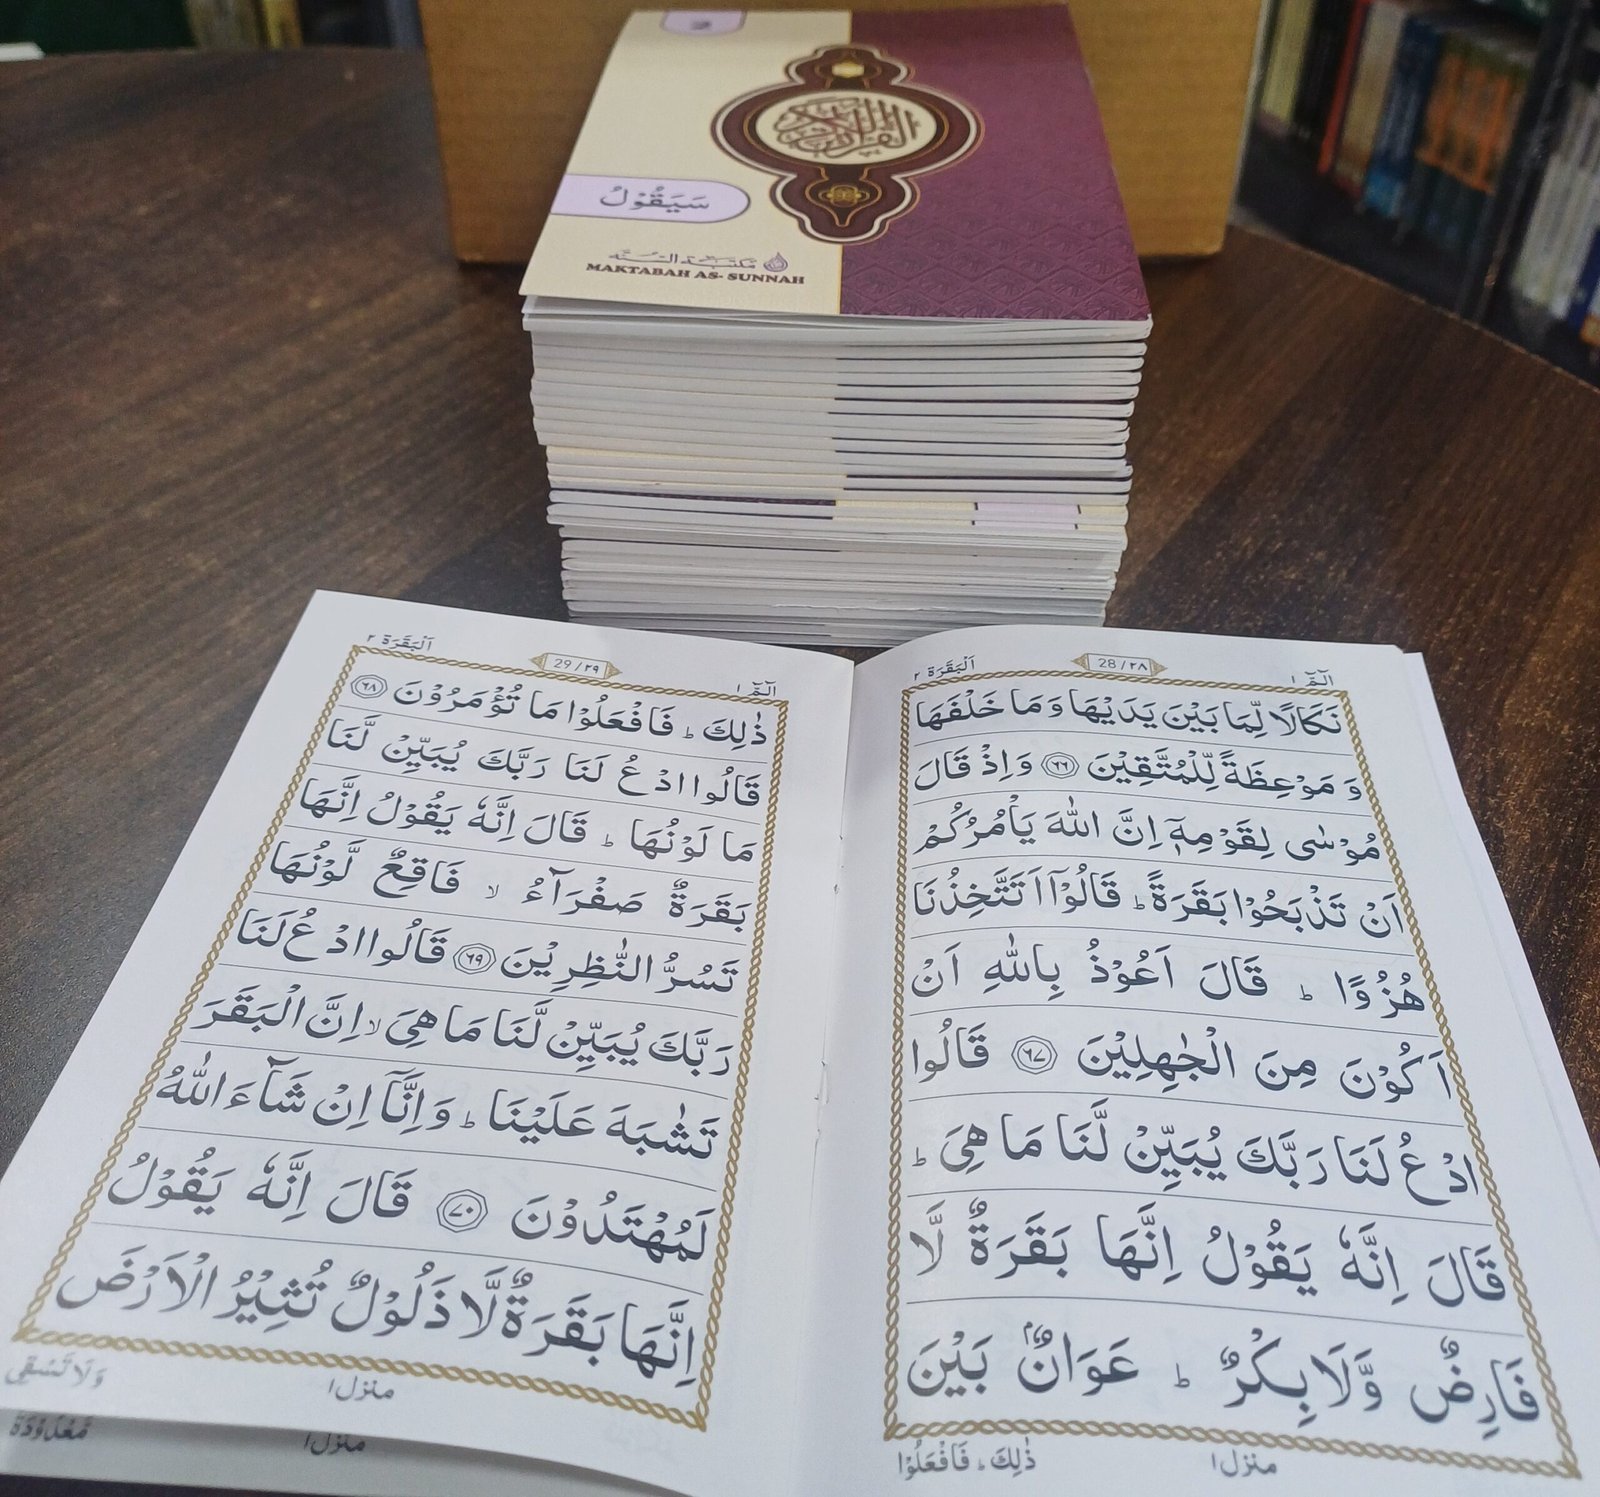 القرآن الكريم
سَيَقُوْلُ
مكتبة السنة
MAKTABAH AS- SUNNAH
الٓمّٓ ١
28 / ٢٨
اَلْبَقَرَة ٢
نَكَالًا لِّمَا بَيْنَ يَدَيْهَا وَمَا خَلْفَهَا
وَ مَوْعِظَةً لِّلْمُتَّقِيْنَ ٦٦ وَاِذْ قَالَ
مُوْسٰى لِقَوْمِهٖٓ اِنَّ اللّٰهَ يَاْمُرُكُمْ
اَنْ تَذْبَحُوْا بَقَرَةً ؕ قَالُوْٓا اَتَتَّخِذُنَا
هُزُوًا ؕ قَالَ اَعُوْذُ بِاللّٰهِ اَنْ
اَكُوْنَ مِنَ الْجٰهِلِيْنَ ٦٧ قَالُوا
ادْعُ لَنَا رَبَّكَ يُبَيِّنْ لَّنَا مَا هِيَ ؕ
قَالَ اِنَّهٗ يَقُوْلُ اِنَّهَا بَقَرَةٌ لَّا
فَارِضٌ وَّلَا بِكْرٌ ؕ عَوَانٌۢ بَيْنَ
منزل١
ذٰلِكَ ؕ فَافْعَلُوْا
الٓمّٓ ١
29 / ٢٩
اَلْبَقَرَة ٢
ذٰلِكَ ؕ فَافْعَلُوْا مَا تُؤْمَرُوْنَ ٦٨
قَالُوا ادْعُ لَنَا رَبَّكَ يُبَيِّنْ لَّنَا
مَا لَوْنُهَا ؕ قَالَ اِنَّهٗ يَقُوْلُ اِنَّهَا
بَقَرَةٌ صَفْرَآءُ ۙ فَاقِعٌ لَّوْنُهَا
تَسُرُّ النّٰظِرِيْنَ ٦٩ قَالُوا ادْعُ لَنَا
رَبَّكَ يُبَيِّنْ لَّنَا مَا هِيَ ۙ اِنَّ الْبَقَرَ
تَشٰبَهَ عَلَيْنَا ؕ وَاِنَّآ اِنْ شَآءَ اللّٰهُ
لَمُهْتَدُوْنَ ٧٠ قَالَ اِنَّهٗ يَقُوْلُ
اِنَّهَا بَقَرَةٌ لَّا ذَلُوْلٌ تُثِيْرُ الْاَرْضَ
منزل١
وَلَا تَسْقِى
منزل١
مَّعْدُوْدَةً